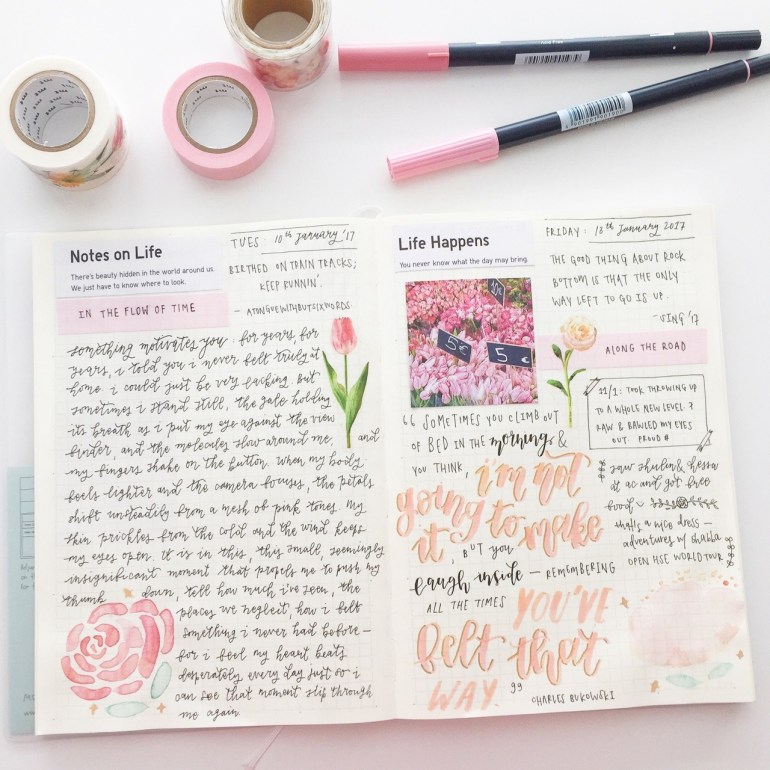 Notes on Life
There's beauty hidden in the world around us.
We just have to know where to look.
IN THE FLOW OF TIME
TUES: 10th January, '17
BIRTHED ON TRAIN TRACKS;
KEEP RUNNIN'.
– ATONGUEWITHBUTSIXWORDS.
something motivates you: for years, for
years, i told you i never felt truly at
home. i could just be very lacking. but
sometimes i stand still, the gale holding
its breath as i put my eye against the view
finder, and the molecules slow around me, and
my fingers shake on the button. when my body
feels lighter and the camera focuses, the petals
shift unsteadily from a mesh of pink tones. my
skin prickles from the cold and the wind keeps
my eyes open. it is in this, this small, seemingly
insignificant moment that propels me to push my
thumb down, tell how much i've seen, the
places we neglect, how i felt
something i never had before –
for i feel my heart beats
desperately every day just so i
can see that moment slip through
me again.
Life Happens
You never know what the day may bring.
10€
5€
5
FRIDAY: 13th January 2017
THE GOOD THING ABOUT ROCK
BOTTOM IS THAT THE ONLY
WAY LEFT TO GO IS UP.
– VING '17
ALONG THE ROAD
11/1: TOOK THROWING UP
TO A WHOLE NEW LEVEL?
RAW & BAWLED MY EYES
OUT. PROUD #
saw shulin & hessa
at ac and got free
food
that's a nice dress –
adventures w/ shabla
OPEN HSE WORLD TOUR
“ SOMETIMES YOU CLIMB OUT
OF BED IN THE morning &
YOU THINK, i'm not
going to make
it, BUT you
laugh inside – REMEMBERING
ALL THE TIMES YOU'VE
felt that
WAY. ”
CHARLES BUKOWSKI